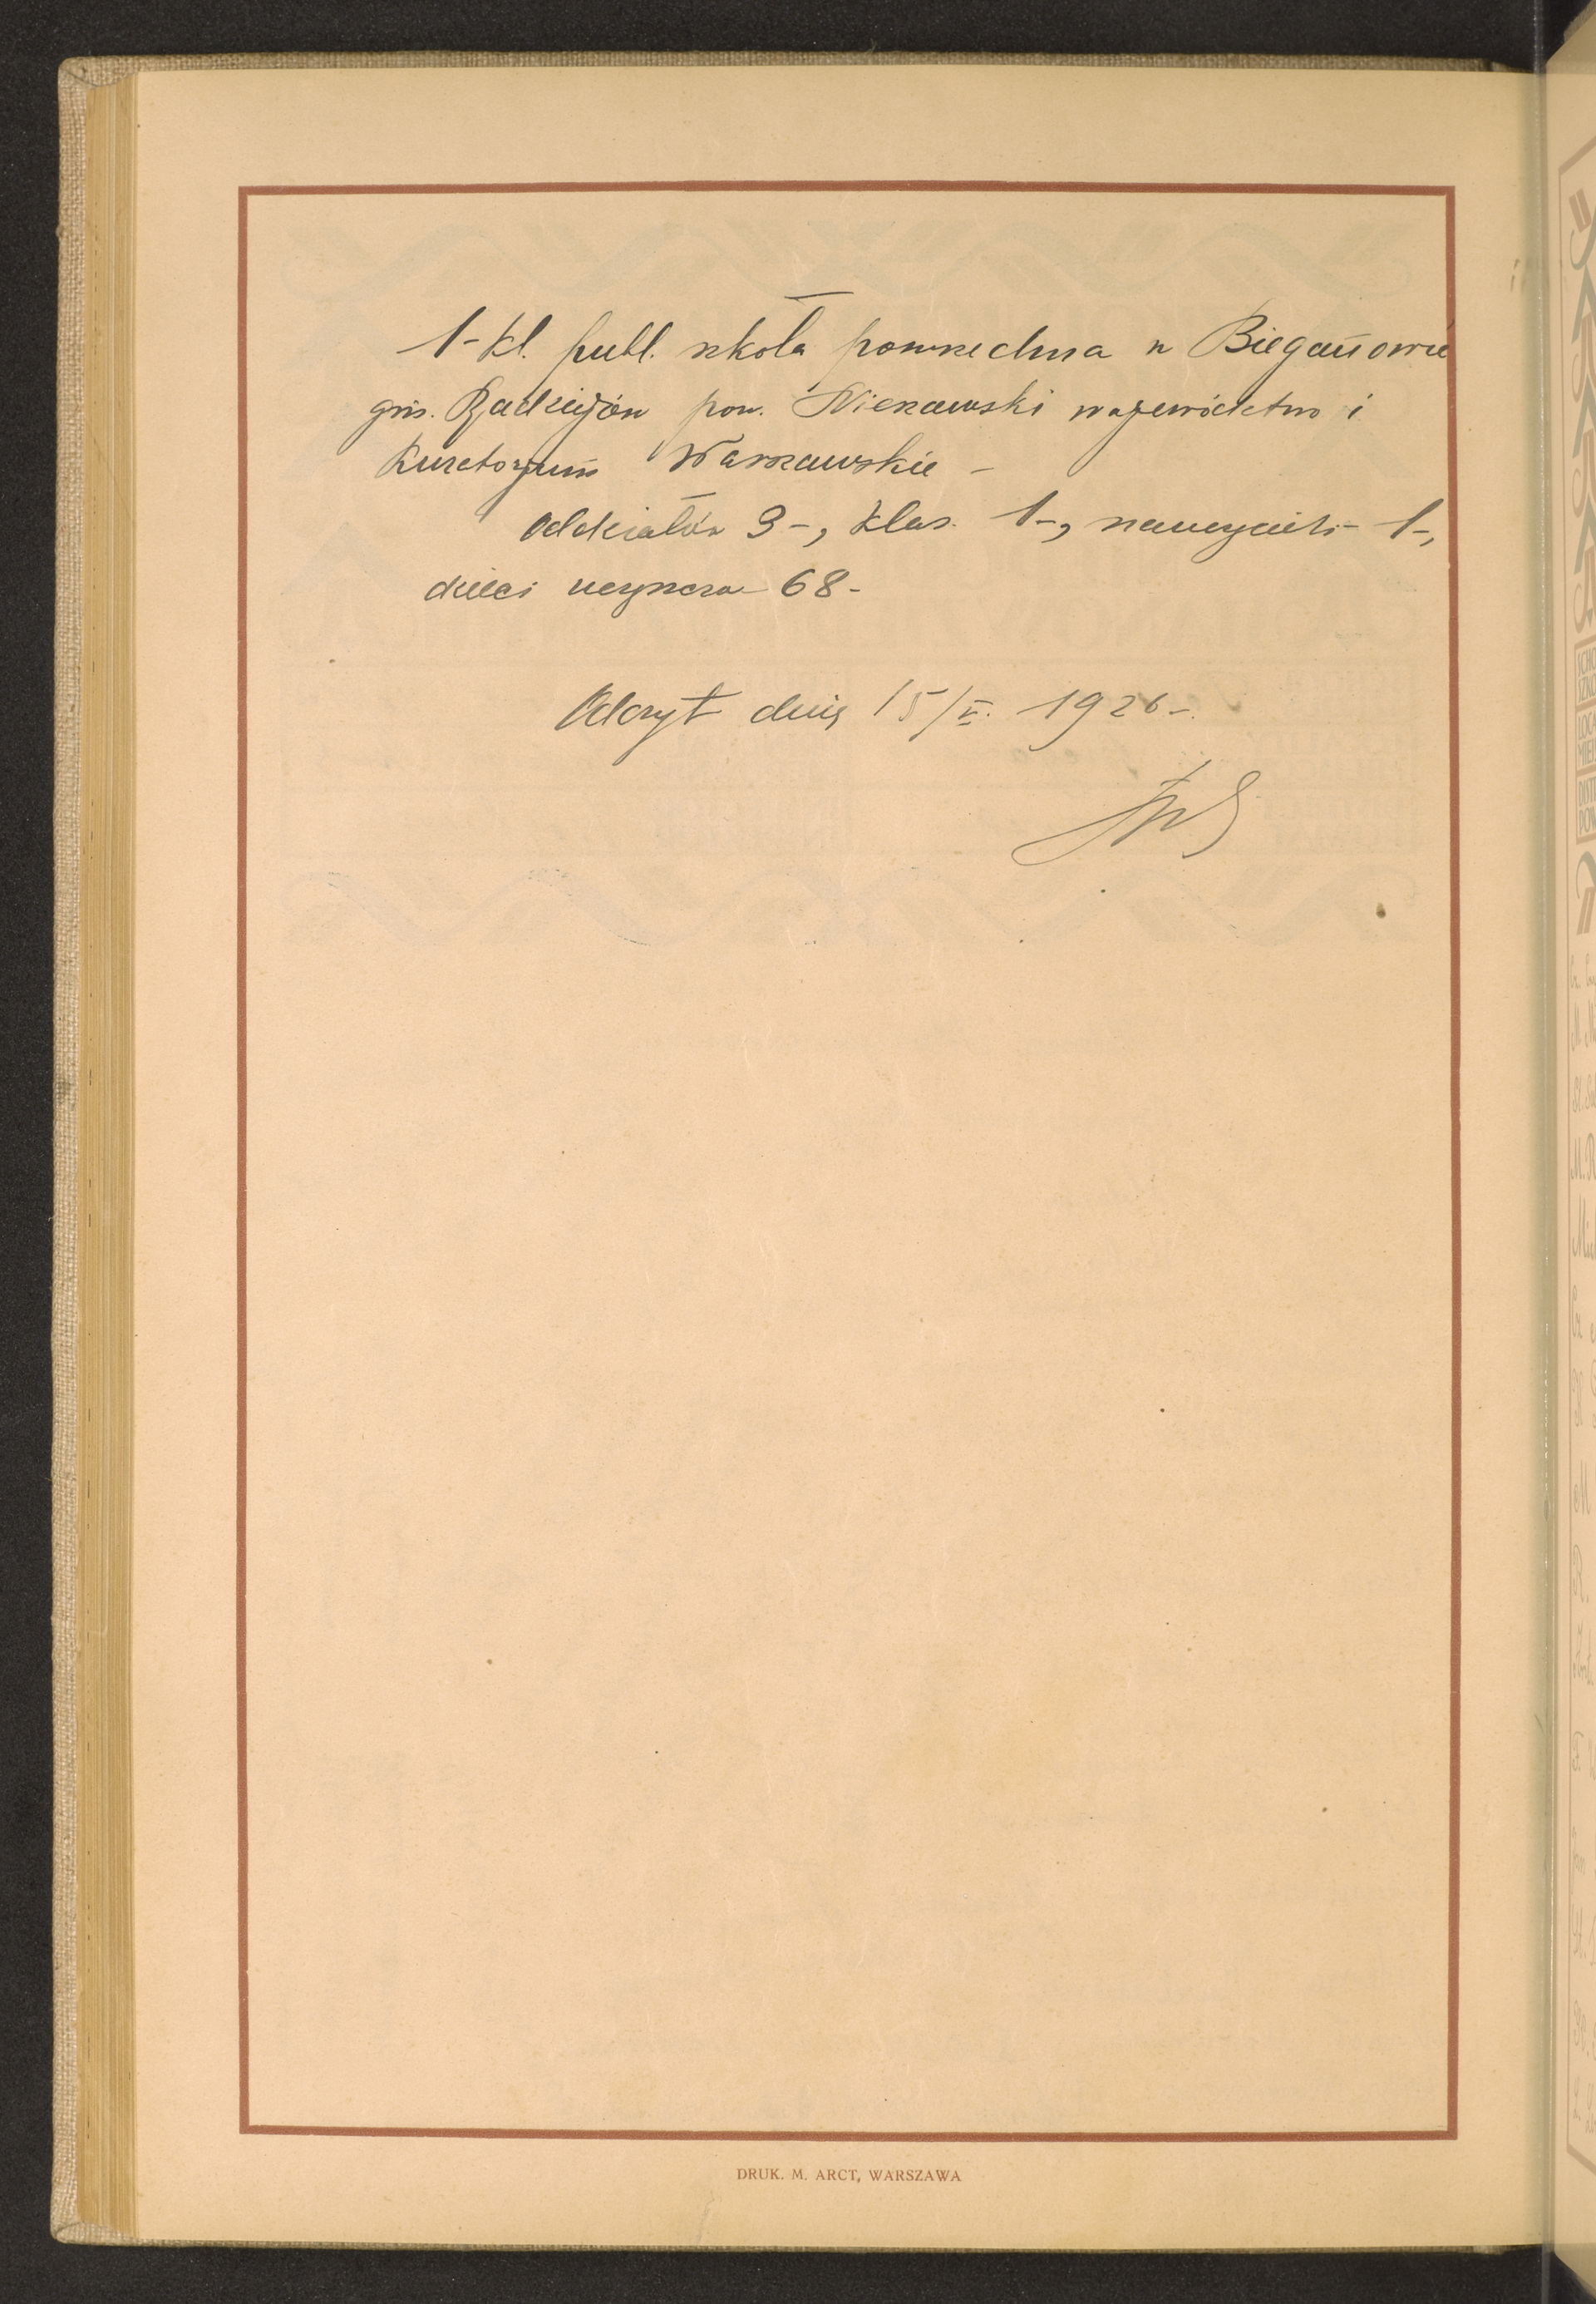 1-kl. publ. szkoła powszechna w Biegańowie
gm. Radziejów pow. Nieszawski województwo i
Kuratorjum Warszawskie -
Oddziałów 3-, klas. 1-, nauczycieli- 1-,
dzieci uczęszcza- 68-
Odczyt dnia 15/V. 1926-.
DRUK. M. ARCT, WARSZAWA